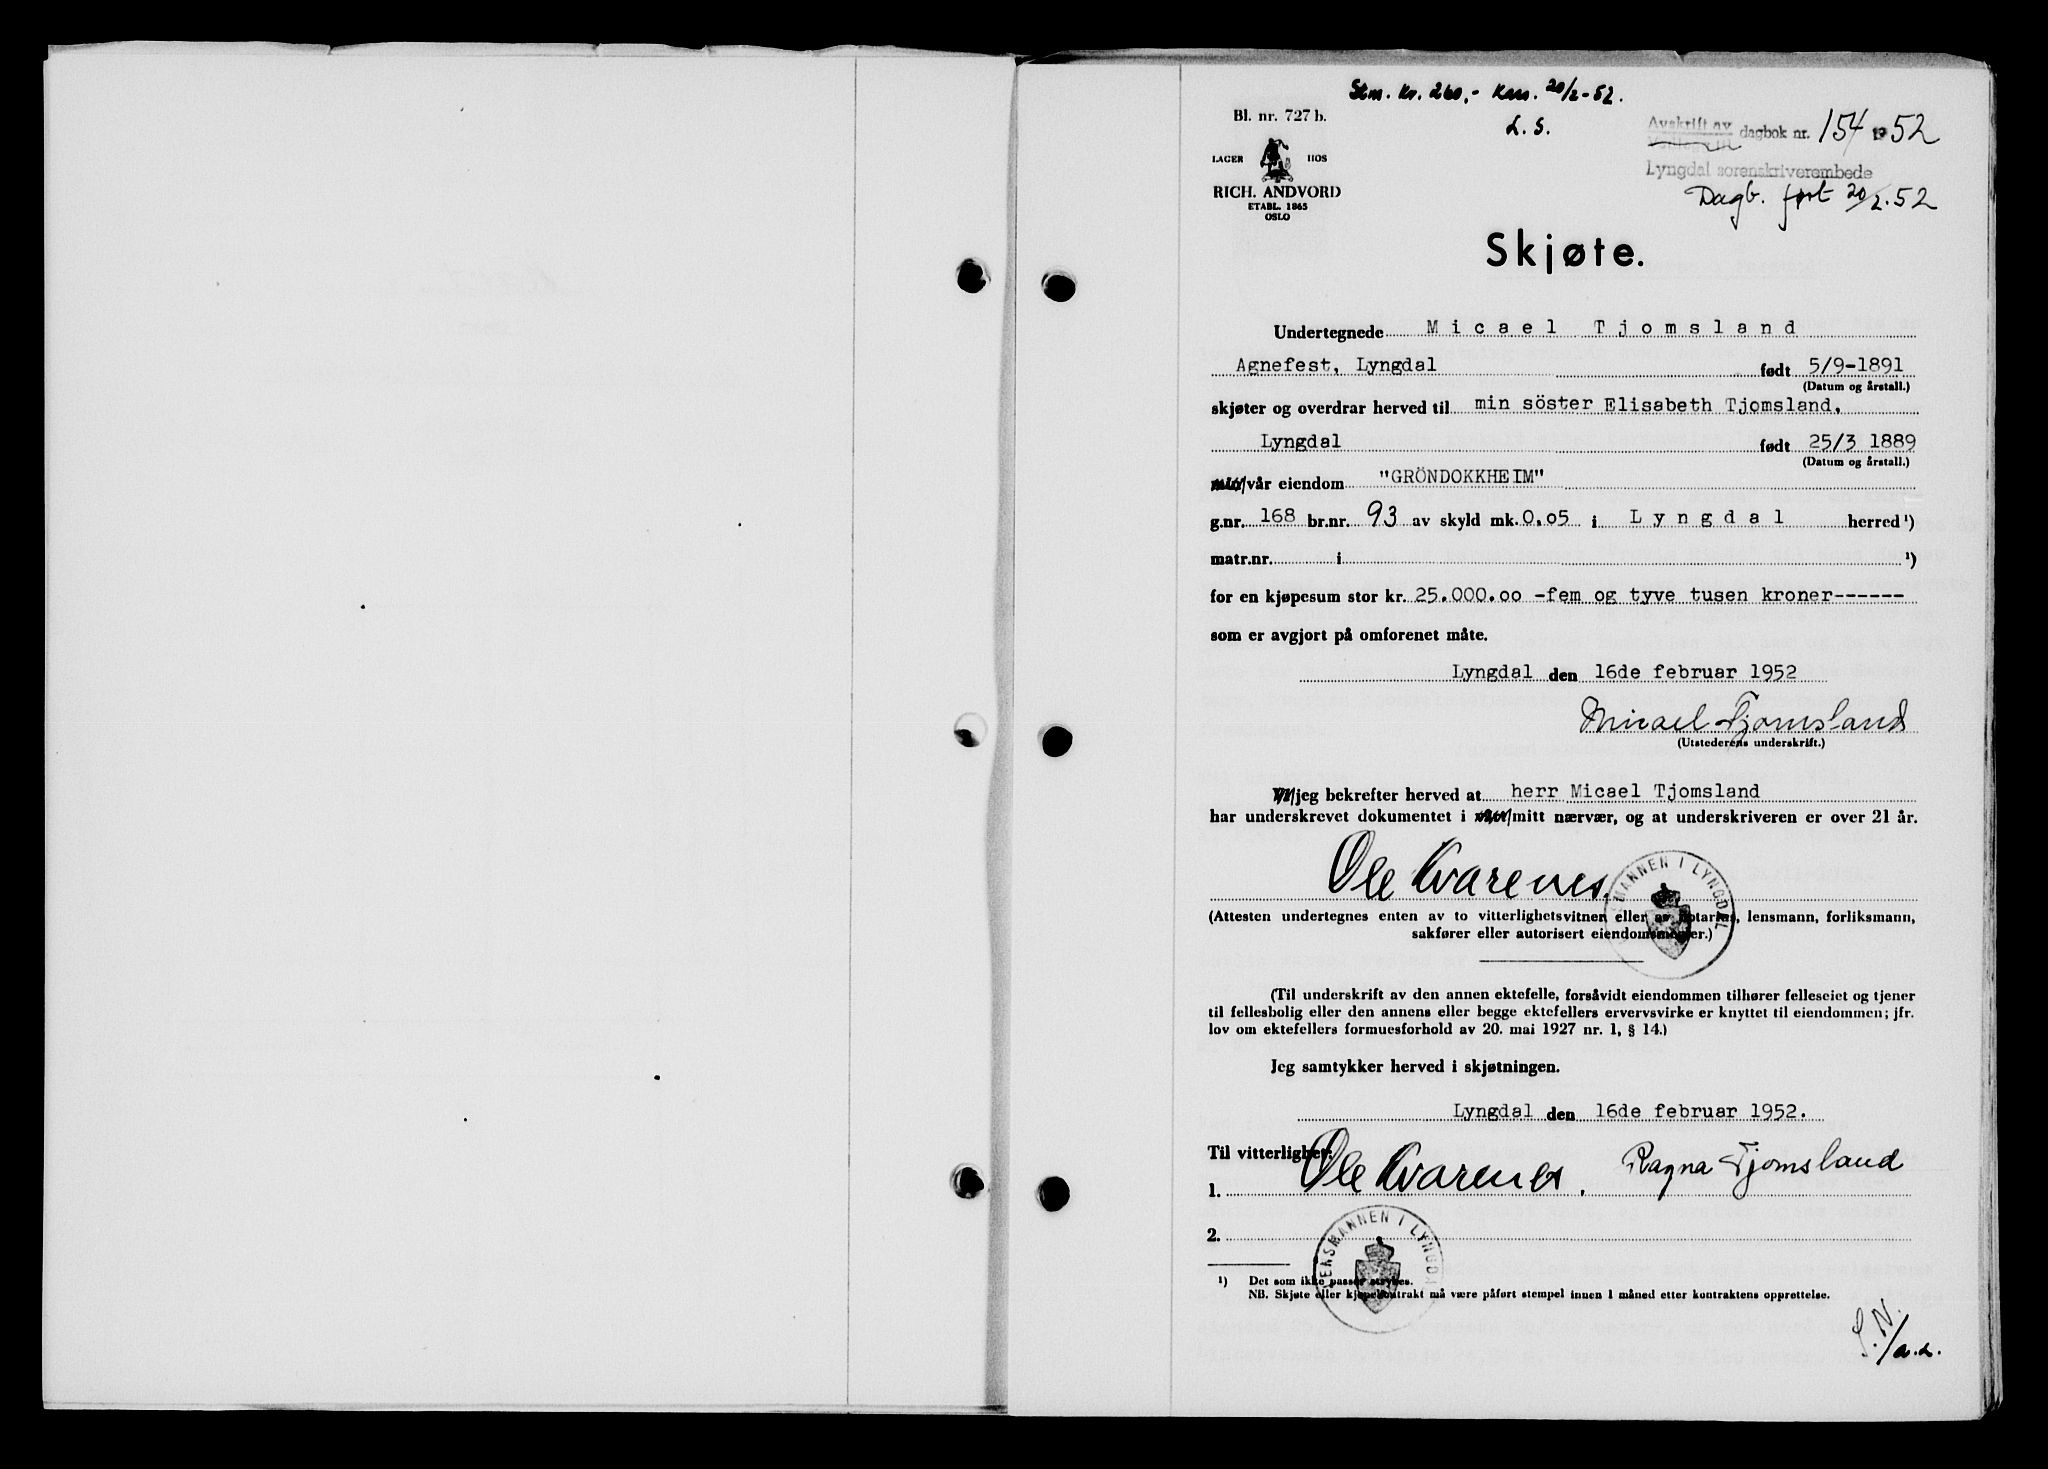 Stm. kr. 260,- Kass. 20/2-52.
L. S.
Bl. nr. 727 b.
LAGER HOS
RICH. ANDVORD
ETABL. 1865
OSLO
Avskrift av
dagbok nr. 154 1952
Lyngdal sorenskriverembede
Dagb. ført 20/2.52
Skjøte.
Undertegnede Micael Tjomsland
Agnefest, Lyngdal født 5/9-1891
(Datum og årstall.)
skjøter og overdrar herved til min söster Elisabeth Tjomsland,
Lyngdal født 25/3 1889
(Datum og årstall.)
min/vår eiendom "GRÖNDOKKHEIM"
g.nr. 168 br.nr. 93 av skyld mk. 0.05 i Lyngdal herred ¹)
matr.nr. i ¹)
for en kjøpesum stor kr. 25.000.00 -fem og tyve tusen kroner------
som er avgjort på omforenet måte.
Lyngdal den 16de februar 1952
Micael Tjomsland
(Utstederens underskrift.)
Vi/jeg bekrefter herved at herr Micael Tjomsland
har underskrevet dokumentet i vårt/mitt nærvær, og at underskriveren er over 21 år.
Ole Kvarenes.
LENSMANNEN I LYNGDAL
(Attesten undertegnes enten av to vitterlighetsvitner eller av notarius, lensmann, forliksmann,
sakfører eller autorisert eiendomsmegler.)
(Til underskrift av den annen ektefelle, forsåvidt eiendommen tilhører felleseiet og tjener
til fellesbolig eller den annens eller begge ektefellers ervervsvirke er knyttet til eiendommen; jfr.
lov om ektefellers formuesforhold av 20. mai 1927 nr. 1, § 14.)
Jeg samtykker herved i skjøtningen.
Lyngdal den 16de februar 1952.
Til vitterlighet:
1. Ole Kvarenes. Ragna Tjomsland
2.
LENSMANNEN I LYNGDAL
¹) Det som ikke passer strykes.
NB. Skjøte eller kjøpekontrakt må være påført stempel innen 1 måned etter kontraktens opprettelse.
S.N./a.s.